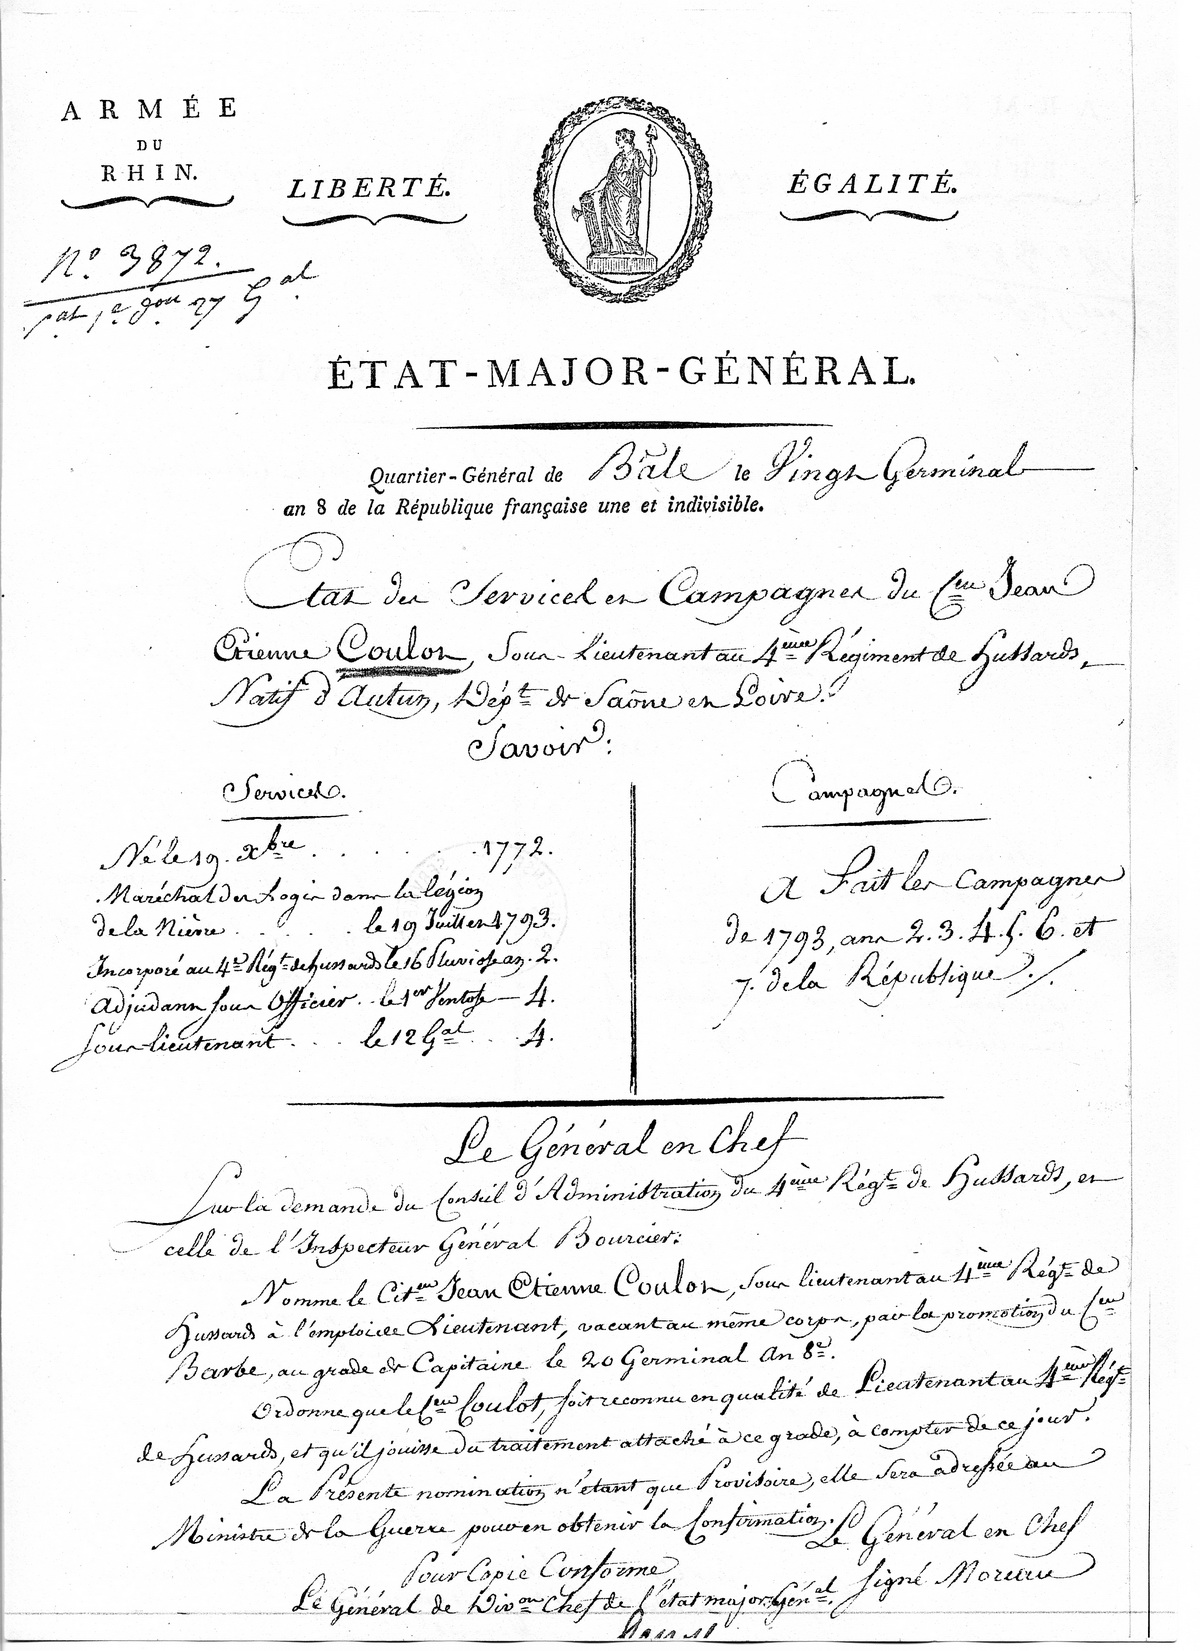 ARMÉE
DU
RHIN.
LIBERTÉ.
ÉGALITÉ.
N.º 3872.
ÉTAT-MAJOR-GÉNÉRAL.
Quartier-Général de Bâle le Vingt Germinal
an 8 de la République française une et indivisible.
Etat des Services et Campagnes du C.en Jean
Etienne Coulon, Sous-Lieutenant au 4.ème Régiment de Hussards,
Natif d'Autun, Dép.t de Saône et Loire.
Savoir:
Services.
Né le 19. Xbre . . . . . 1772.
Maréchal des Logis dans la légion
de la Nièvre . . . . . le 19 Juillet 1793.
Incorporé au 4.e Rég.t de hussards le 16 Pluviose an. 2.
Adjudant sous Officier . . le 1er Ventose — 4.
Sous-lieutenant . . . le 12 G.al . . . 4.
Campagnes.
A Fait les Campagnes
de 1793, ans 2. 3. 4. 5. 6. et
7. de la République ./.
Le Général en Chef
Sur la demande du Conseil d'Administration du 4ème Rég.t de Hussards, et
celle de l'Inspecteur Général Bourcier:
Nomme le Cit.en Jean Etienne Coulon, Sous lieutenant au 4.ème Rég.t de
Hussards à l'emploi de Lieutenant, vacant au même corps, par la promotion du C.en
Barbe, au grade de Capitaine le 20 Germinal An 8e.
Ordonne que le C.en Coulot, soit reconnu en qualité de Lieutenant au 4.ème Rég.t
de Hussards, et qu'il jouisse du traitement attaché à ce grade, à compter de ce jour.
La Présente nomination n'étant que Provisoire, elle sera adressée au
Ministre de la Guerre pour en obtenir la Confirmation.
Le Général en Chef
Signé Moreau
Pour Copie Conforme
Le Général de Div.on Chef de l'état major Gén.al